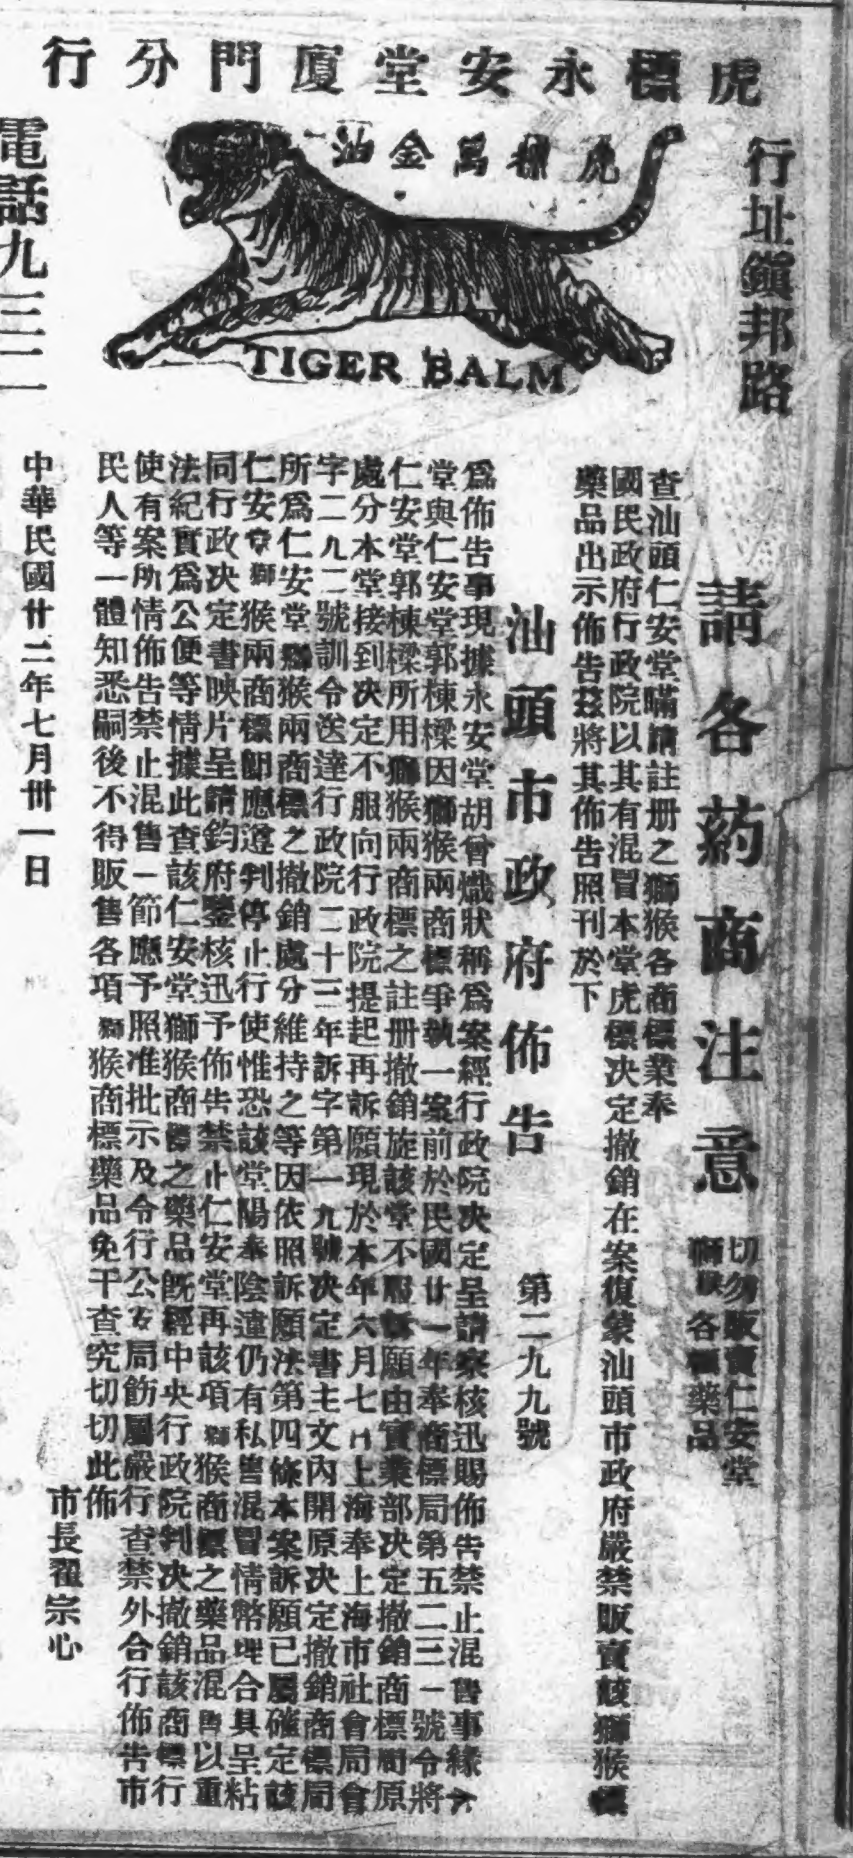 虎標永安堂廈門分行
行址鎮邦路
虎標萬金油
TIGER BALM
電話九三二
請各葯商注意
切勿販賣仁安堂
獅猴各標藥品
查汕頭仁安堂瞞請註册之獅猴各商標業奉
國民政府行政院以其有混冒本堂虎標决定撤銷在案復蒙汕頭市政府嚴禁販賣該獅猴標
藥品出示佈告茲將其佈告照刊於下
汕頭市政府佈告
第二九九號
爲佈告事現據永安堂胡曾熾狀稱爲案經行政院决定呈請察核迅賜佈告禁止混售事緣
堂與仁安堂郭棟樑因獅猴兩商標爭執一案前於民國廿一年奉商標局第五二三一號令將
仁安堂郭棟樑所用獅猴兩商標之註册撤銷旋該堂不服訴願由實業部决定撤銷商標局原
處分本堂接到决定不服向行政院提起再訴願現於本年六月七日上海奉上海市社會局會
字二九二號訓令送達行政院二十三年訴字第一九號决定書主文內開原决定撤銷商標局
所爲仁安堂獅猴兩商標之撤銷處分維持之等因依照訴願法第四條本案訴願已屬確定該
仁安堂獅猴兩商標卽應遵判停止行使惟恐該堂陽奉陰違仍有私售混冒情幣理合具呈粘
同行政决定書映片呈請鈞府鑒核迅予佈告禁止仁安堂再該項獅猴商標之藥品混售以重
法紀實爲公便等情據此查該仁安堂獅猴商標之藥品旣經中央行政院判决撤銷該商標行
使有案所情佈告禁止混售一節應予照准批示及令行公安局飭屬嚴行查禁外合行佈告市
民人等一體知悉嗣後不得販售各項獅猴商標藥品免干查究切切此佈
市長翟宗心
中華民國廿三年七月卅一日